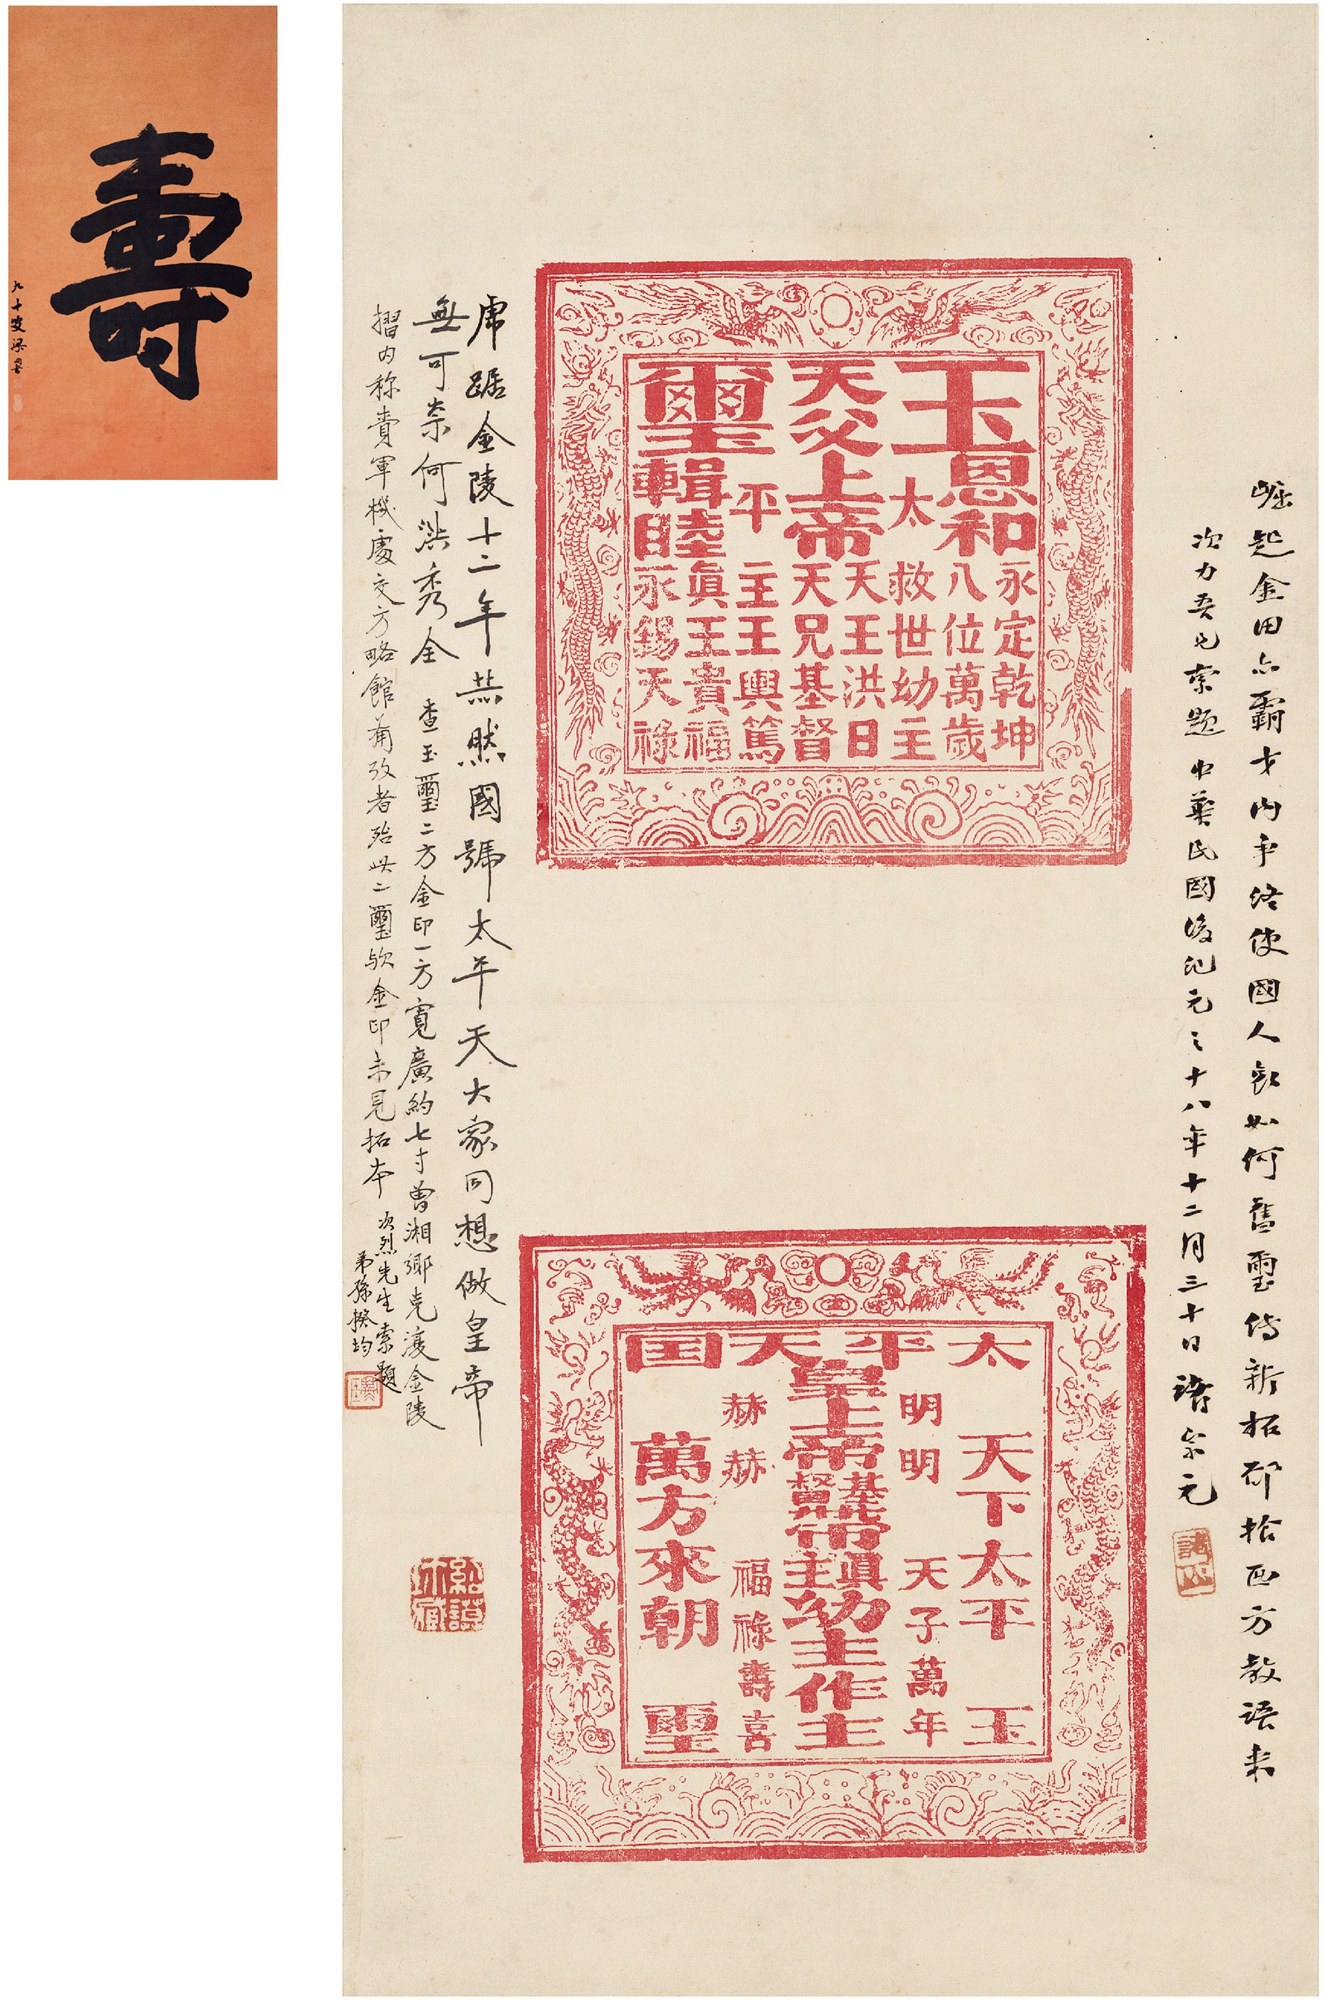 壽
九十叟梁
崛起金田亦霸才內爭終使國人哀如何舊璽傳新拓卻拾西方教語來
次力吾兄索題 中華民國後紀元之十八年十二月三十日 諸宗元
玉
恩和
永定乾坤
八位萬歲
太
救世幼主
天父上帝
天王洪日
天兄基督
平
主王輿篤
璽
輯睦
真王貴福
永錫天祿
太平天囯
天下太平
玉
明明
天子萬年
皇上帝基督帶真主幼主作主
赫赫
福祿壽喜
萬方來朝
璽
虎踞金陵十二年 恭然國號太平天 大家同想做皇帝
無可奈何洪秀全 查玉璽二方金印一方寬廣約七寸曾湘鄉克復金陵
摺內稱賚軍機處交方略館備攷者殆此二璽歟金印未見拓本
次烈先生索題
弟孫揆均